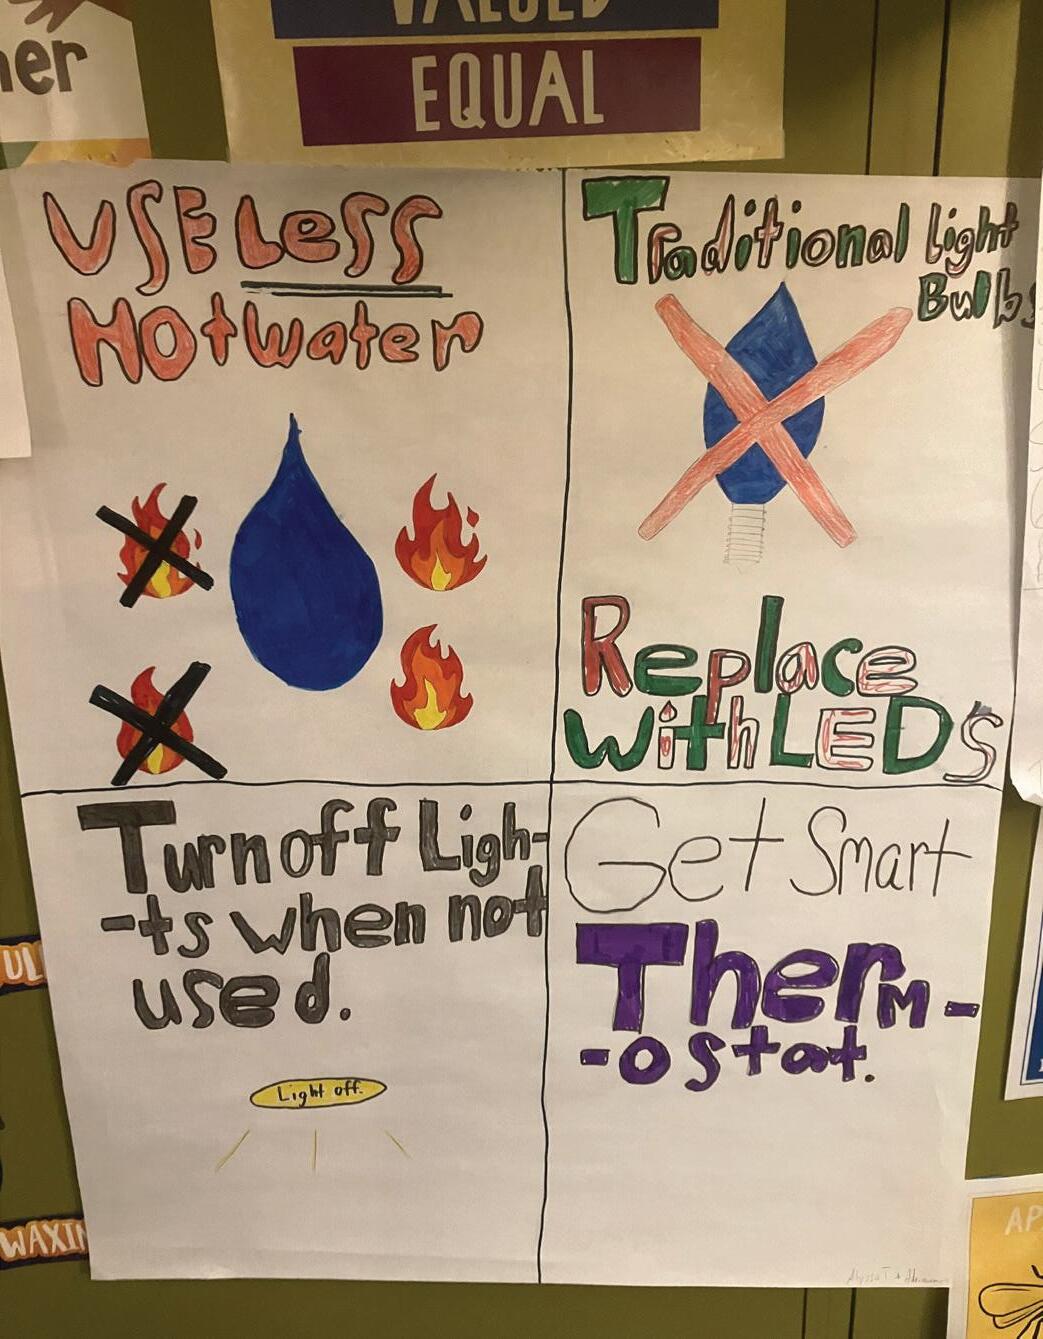 her
VALUED
EQUAL
USE Less
Hot water
Traditional Light
Bulbs
Replace
with LEDS
Turn off Ligh-
-ts when not
used.
Light off.
Get Smart
Therm-
-ostat.
UL
WAXIN
AP
Alyssa T +